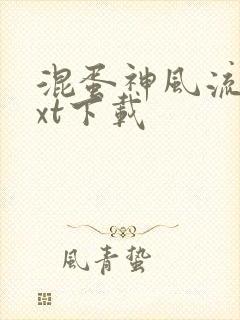 混蛋神風流
xt下載
風青蟄